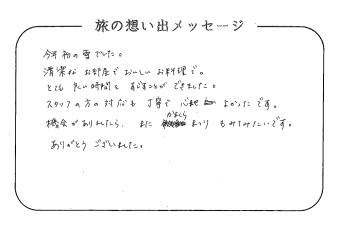 旅の想い出メッセージ
今年初の雪でした。
清潔なお部屋でおいしいお料理で。
とても楽しい時間をすごすことができました。
スタッフの方の対応も丁寧で心地よかったです。
機会がありましたら、また かまくらまつりもみてみたいです。
ありがとうございました。